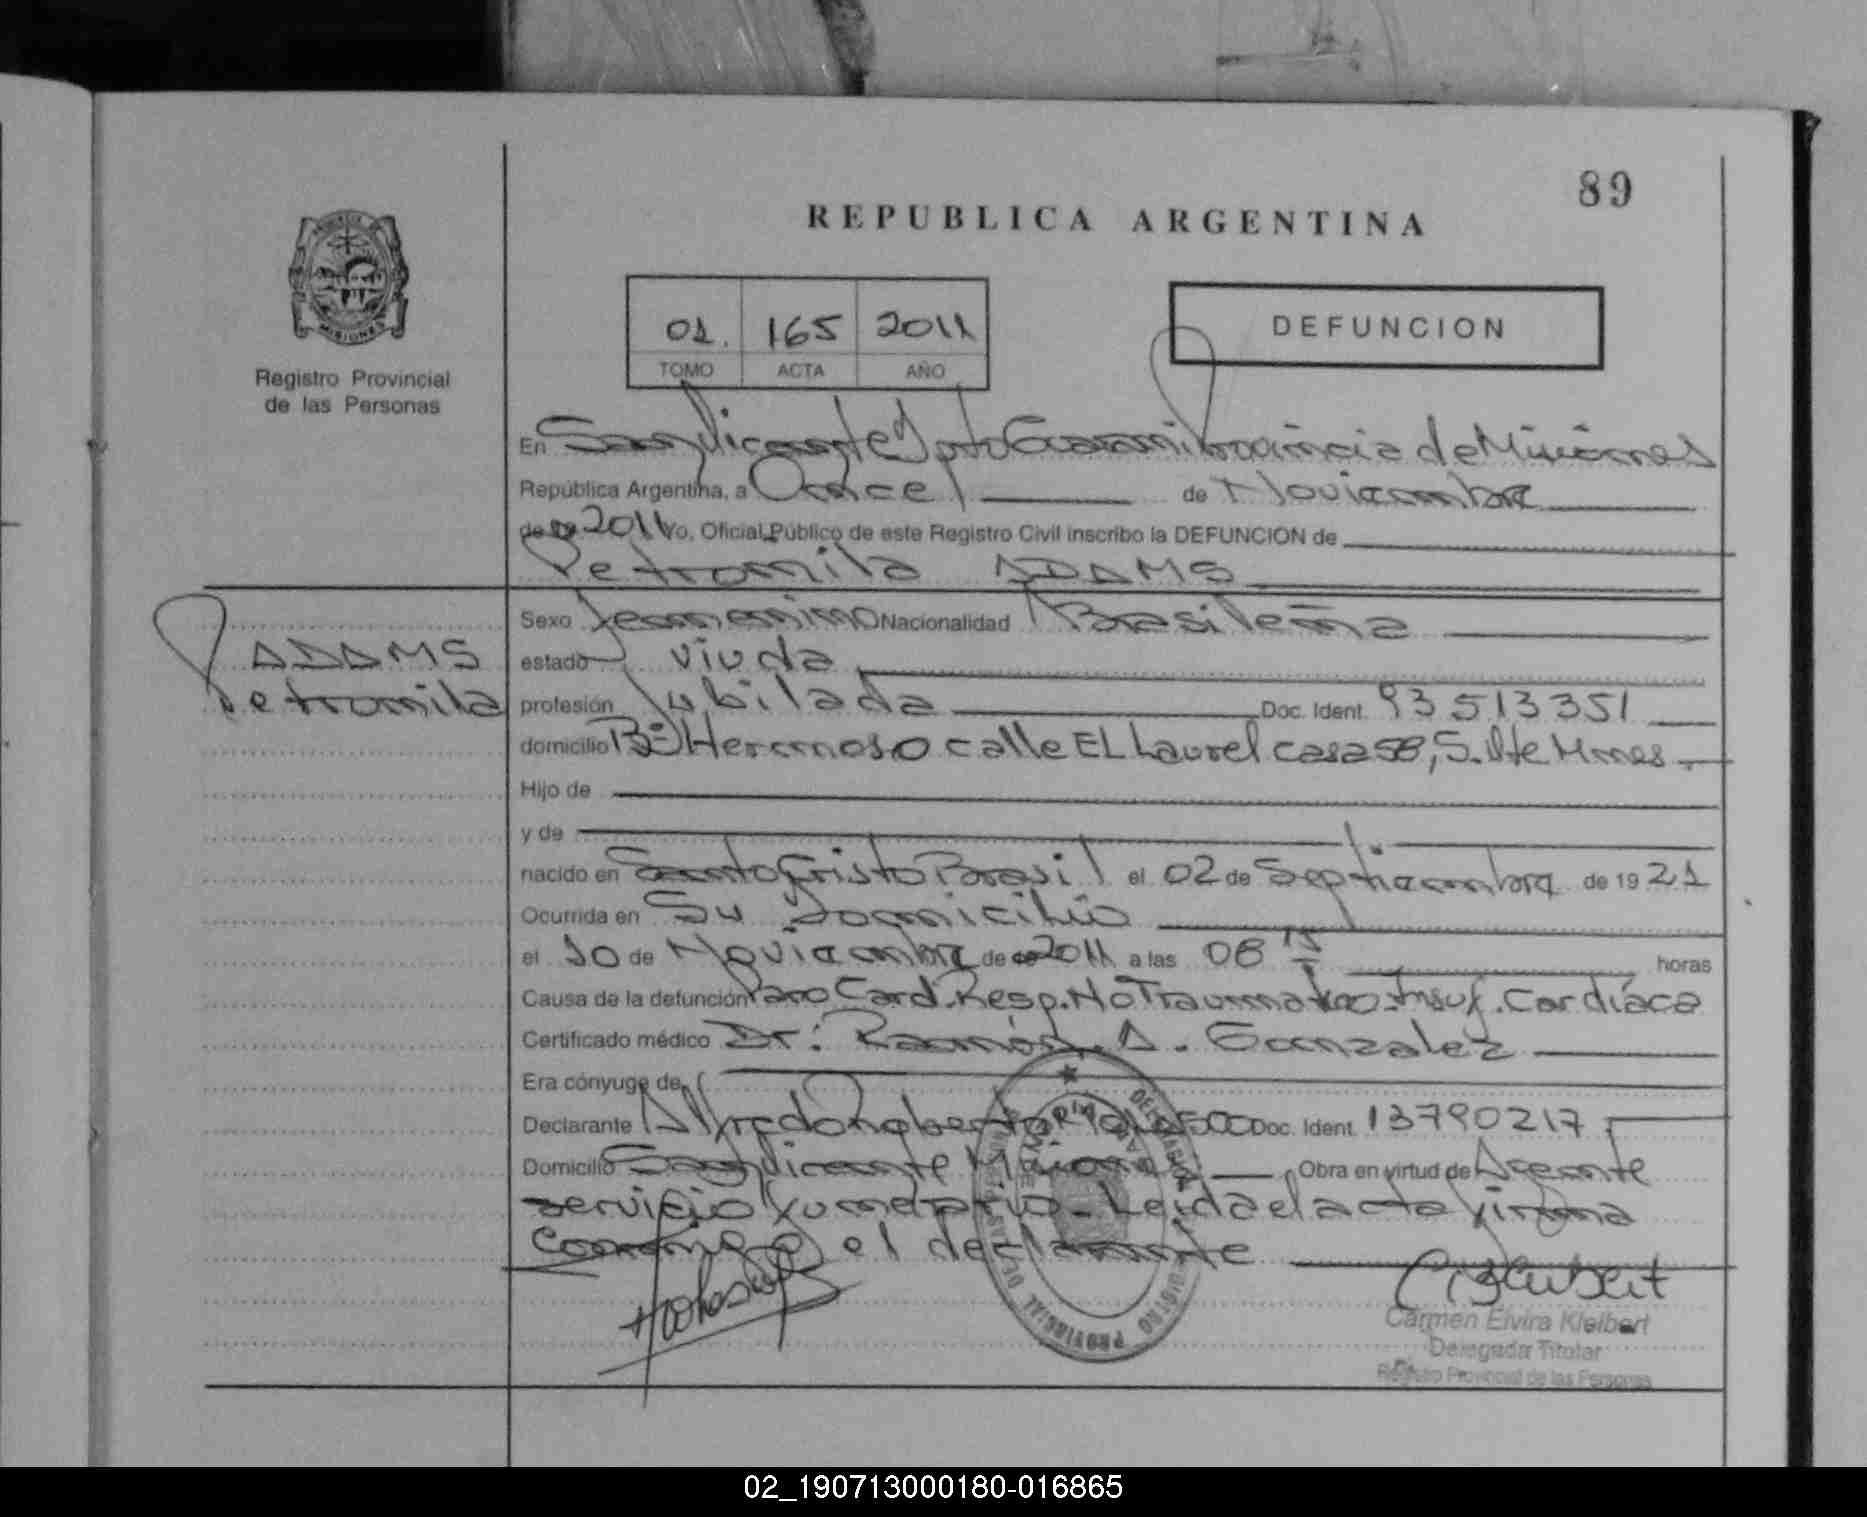 89
REPUBLICA ARGENTINA
MISIONES
Registro Provincial
de las Personas
01. 165 2011
TOMO ACTA AÑO
DEFUNCION
En San Vicente Dpto Guarani Provincia de Misiones
República Argentina, a Once de Noviembre
de 2011 Yo, Oficial Público de este Registro Civil inscribo la DEFUNCION de
Petronila ADAMS
ADAMS
Petronila
Sexo femenino Nacionalidad Brasileña
estado viuda
profesión Jubilada Doc. Ident. 93513351
domicilio Bº Hermoso calle EL Laurel casa 58, S. Vte Mnes.
Hijo de
y de
nacido en Santo Cristo Brasil el 02 de Septiembre de 19 21
Ocurrida en Su Domicilio
el 10 de Noviembre de 2011 a las 08 15 horas
Causa de la defunción Paro Card. Resp. No Traumatico. Insuf. Cardíaca
Certificado médico Dr: Ramón. A. Gonzalez
Era cónyuge de
Declarante Alfredo Rigoberto Doc. Ident. 13790217
Domicilio San Vicente Misiones Obra en virtud de Agente
servicio funerario. Leida el acta firma
conmigo el declarante
REGISTRO PROVINCIAL DE LAS PERSONAS
Carmen Elvira Kleibert
Delegada Titular
Registro Provincial de las Personas
02_190713000180-016865